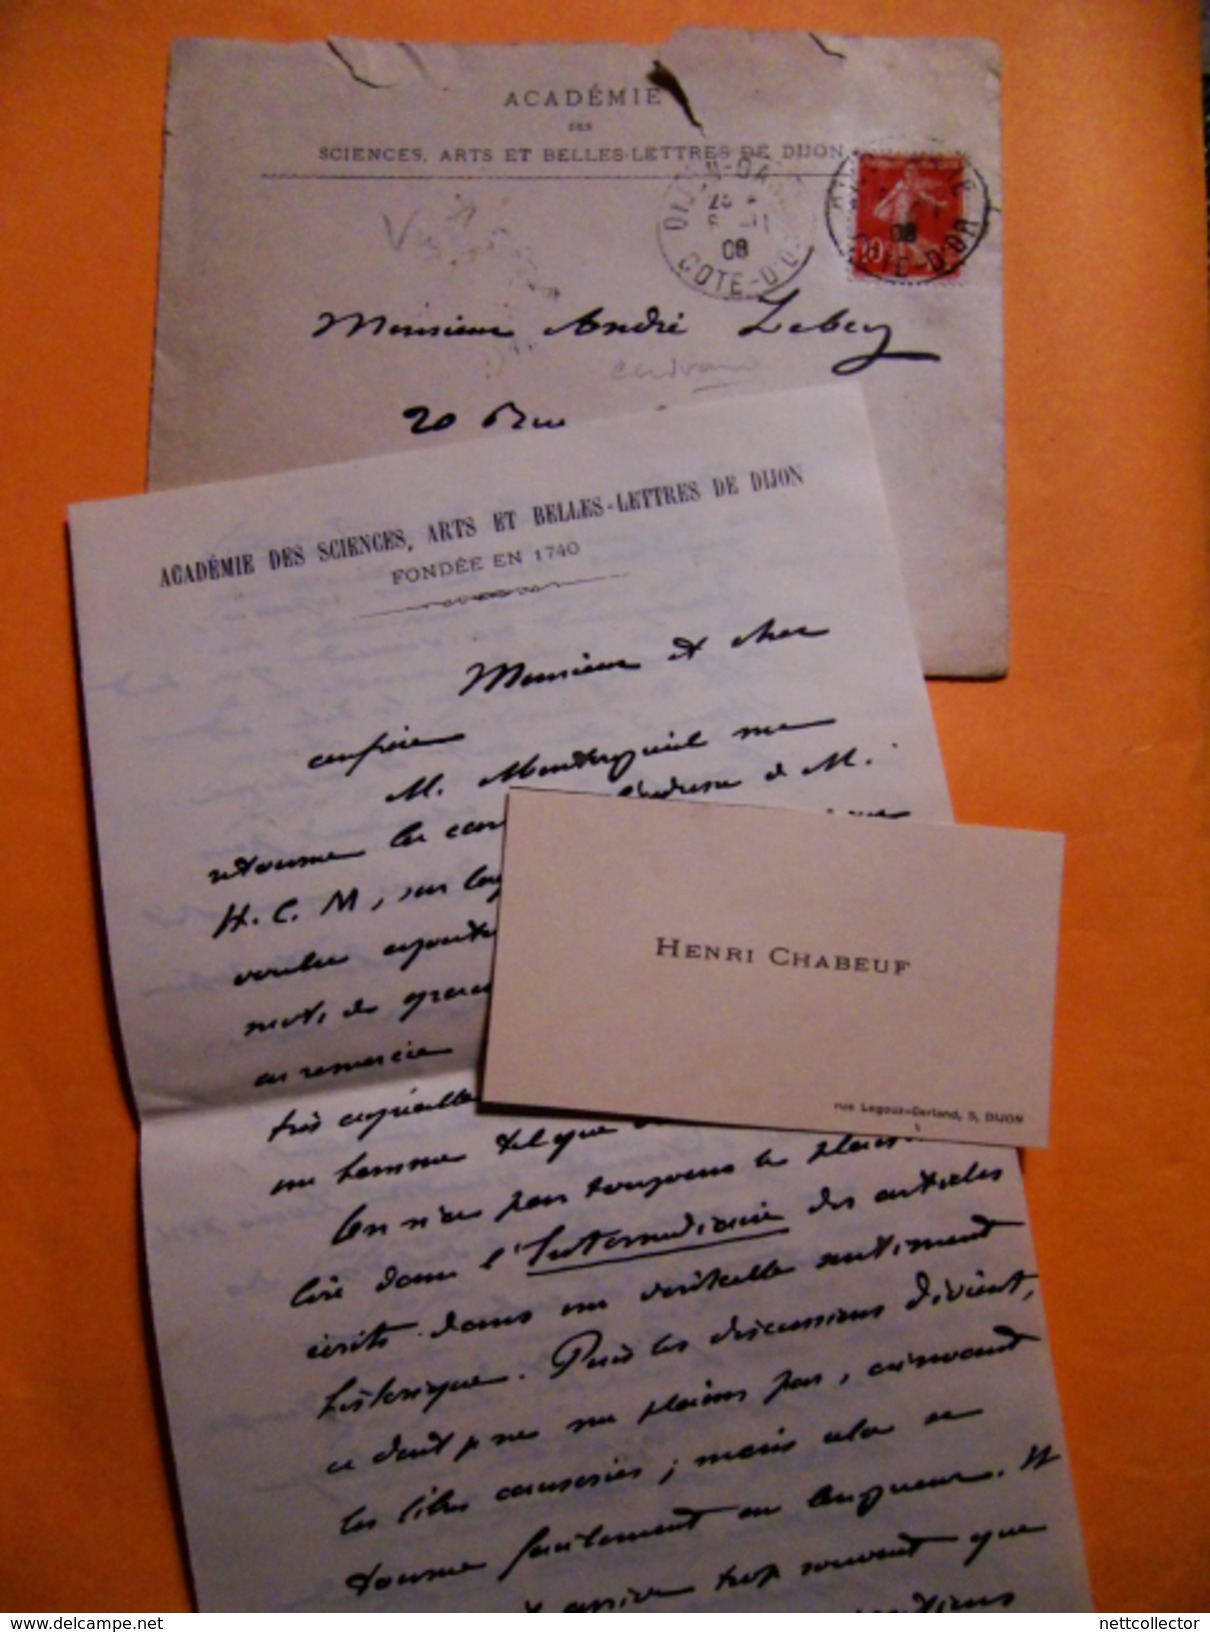 ACADÉMIE
DES
SCIENCES, ARTS ET BELLES-LETTRES DE DIJON
DIJON
08
COTE-D'OR
08
COTE-D'OR
10
Monsieur André Lebey
écrivain
20 Rue
ACADÉMIE DES SCIENCES, ARTS ET BELLES-LETTRES DE DIJON
FONDÉE EN 1740
Monsieur et cher
confrère
M. Montorgueil me
retourne les l'adresse de M.
H. C. M, sur
vouliez
mots de
en remercie
très
un homme tel que
On n'a pas toujours le plaisir
lire dans l'Intermédiaire des articles
écrits dans un véritable sentiment
historique. Puis les discussions dévient,
ce dont je ne me plains pas, aimant
les libres causeries ; mais cela se
tourne facilement en longueur. Il
arrive trop souvent que
HENRI CHABEUF
rue Legouz-Gerland, 5, DIJON
www.delcampe.net
nettcollector